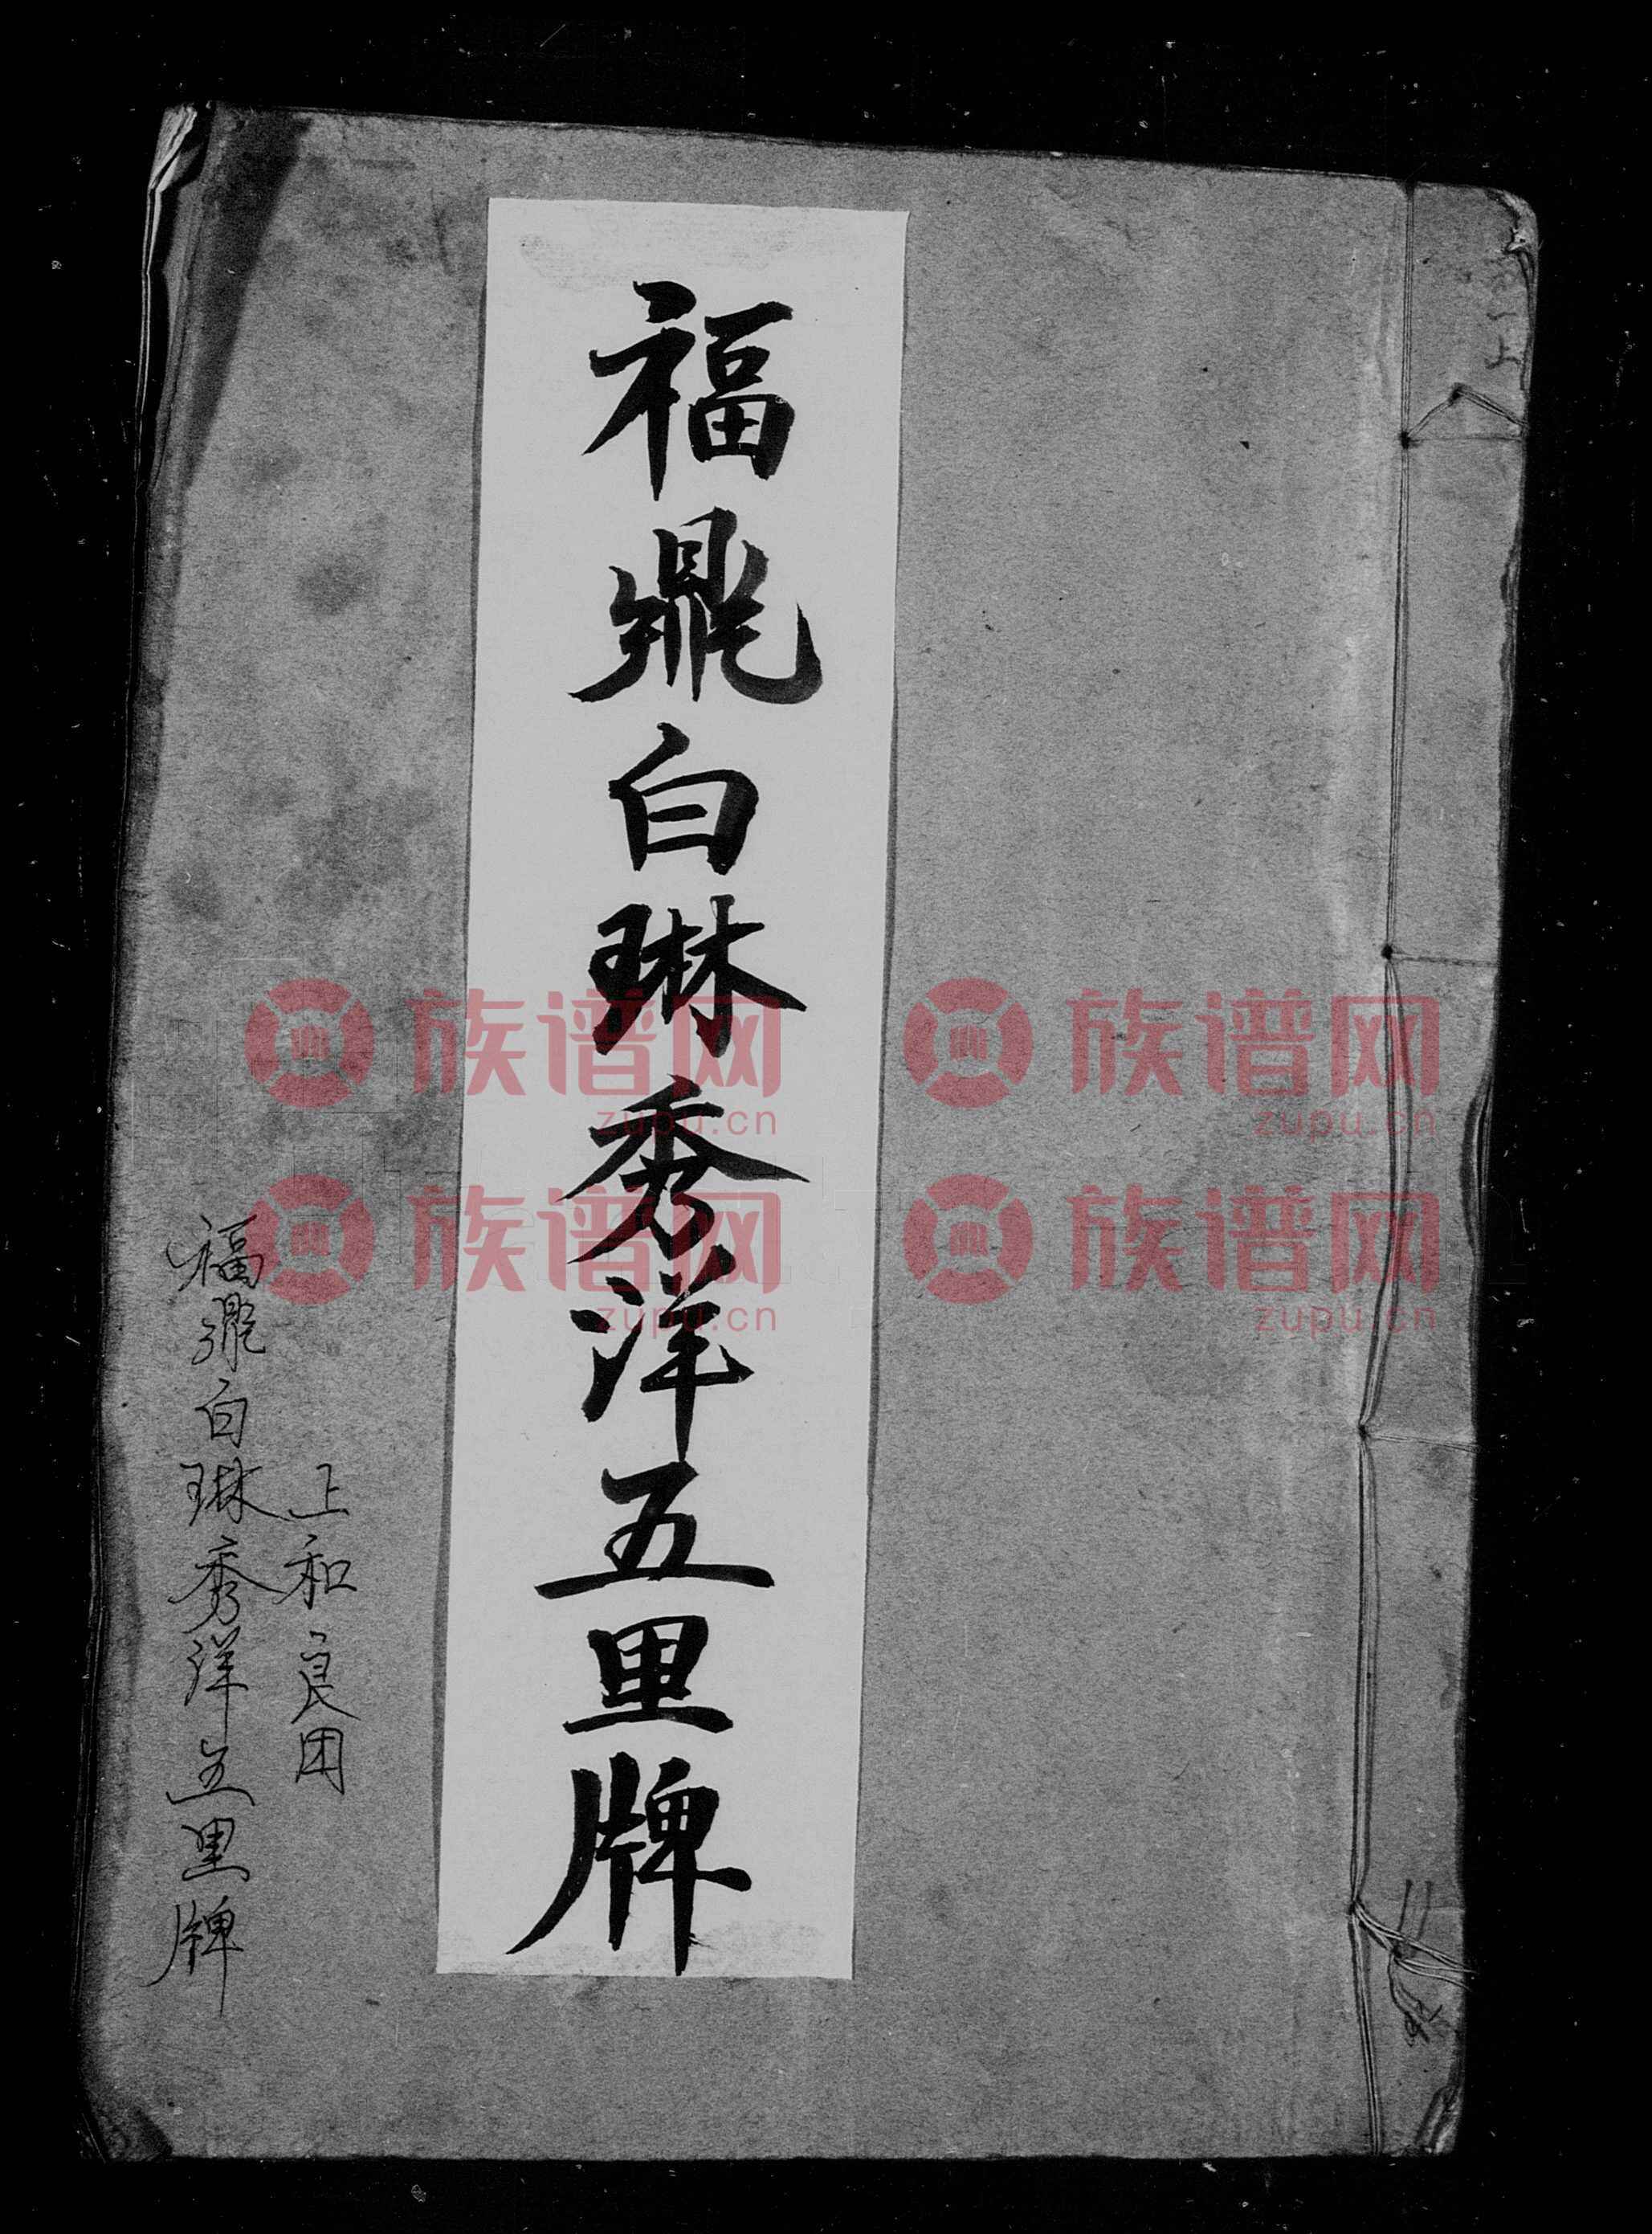 福鼎白琳秀洋五里牌
上和良团
福鼎白琳秀洋五里牌
族谱网
zupu.cn
族谱网
zupu.cn
族谱网
zupu.cn
族谱网
zupu.cn